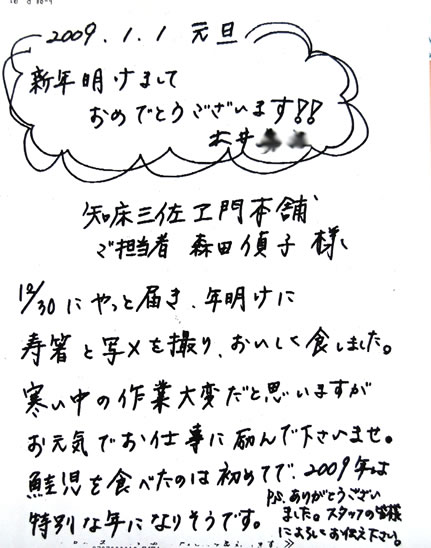 2009.1.1 元旦
新年明けまして
おめでとうございます!!
知床三佐ヱ門本舗
ご担当者 森田偵子 様
12/30にやっと届き、年明けに
寿箸と写メを撮り、おいしく食しました。
寒い中の作業大変だと思いますが
お元気でお仕事に励んで下さいませ。
鮭児を食べたのは初めてで、2009年は
特別な年になりそうです。
P.S. ありがとうござい
ました。スタッフの皆様
によろしくお伝え下さい。